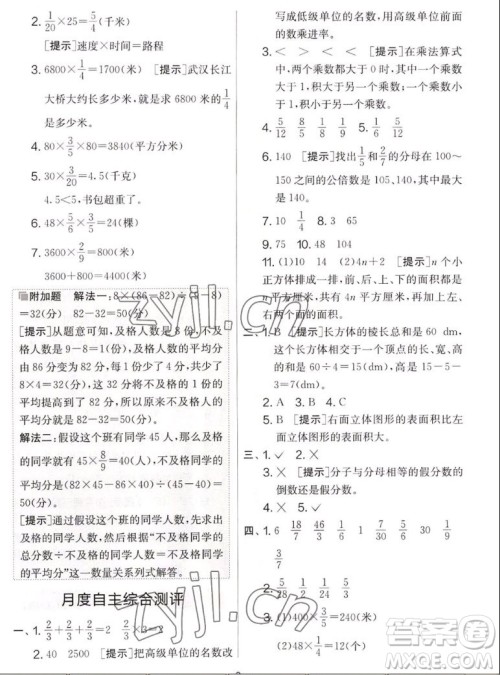 2. 1/20×25=5/4(千米)
[提示]速度×时间=路程
3. 6800×1/4=1700(米) [提示]武汉长江
大桥大约长多少米,就是求 6800 米的1/4
是多少米。
4. 80×3/5×80=3840(平方分米)
5. 30×3/20=4.5(千克)
4.5<5,书包超重了。
6. 48×5/6×3/5=24(棵)
7. 3600×2/9=800(米)
3600+800=4400(米)
附加题 解法一:8×(86-82)÷(9-8)
=32(分) 82-32=50(分)
[提示]从题意可知,及格人数是 8 份,不及
格人数是 9-8=1(份),及格人数的平均分
由 86 分变为 82 分,每份少了 86-82=
4(分),这 8 份少的分数给不及格的 1 份的
平均分提高到 82 分,说明提高了
8×4=32(分),所以原来不及格的同学的平
均分就是 82-32=50(分)。
解法二:假设这个班有同学 45 人,那么及
格的同学就有 45×8/9=40(人),不及格的
同学的平均分是
(82×45-86×40)÷(45-40)=
50(分)。
[提示]通过假设这个班的同学人数,先求出
及格的同学人数,然后根据“不及格同学的
总分数÷不及格的同学人数=不及格同学
的平均分”这一数量关系列式解答。
月度自主综合测评
一、1. 2/3+2/3+2/3=2 2/3×3=2
2. 40 2500 [提示]把高级单位的名数改
写成低级单位的名数,用高级单位前面
的数乘进率。
3. < > = = [提示]在乘法算式
中,两个乘数都大于 0 时,其中一个乘数
大于 1,积大于另一个乘数;一个乘数小
于 1,积小于另一个乘数。
4. 5/12 5/8 1/8 1/9 5/12
6. 140 [提示]找出1/5和2/7的分母在 100~
150 之间的公倍数是 105、140,其中最大
是 140。
8. 10 1/4 9. 3 48
10. 75 90 4
11. (1)10 14 (2)4n+2 [提示]n 个小
正方体排成一排,前、后、上、下的面积都是
n 平方厘米,共有 4n 平方厘米,再加上
左、右两个面的面积。
二、1. B [提示]长方体的棱长总和是 60 dm,
其中相交于一个顶点的长、宽、高
的和是 60÷4=15(dm),高是 15-5-
3=7(dm)。
4. D
5. A B [提示]右面立体图形的表面积比左
面立体图形的表面积大。
三、1. ✓ 2. ✗
3. ✗ [提示]分子与分母相等的假分数的
倒数还是假分数。
4. ✗ 5. ✓
四、
3. (1)400×3/4=300(米)
(2)48×1/4=12(个)